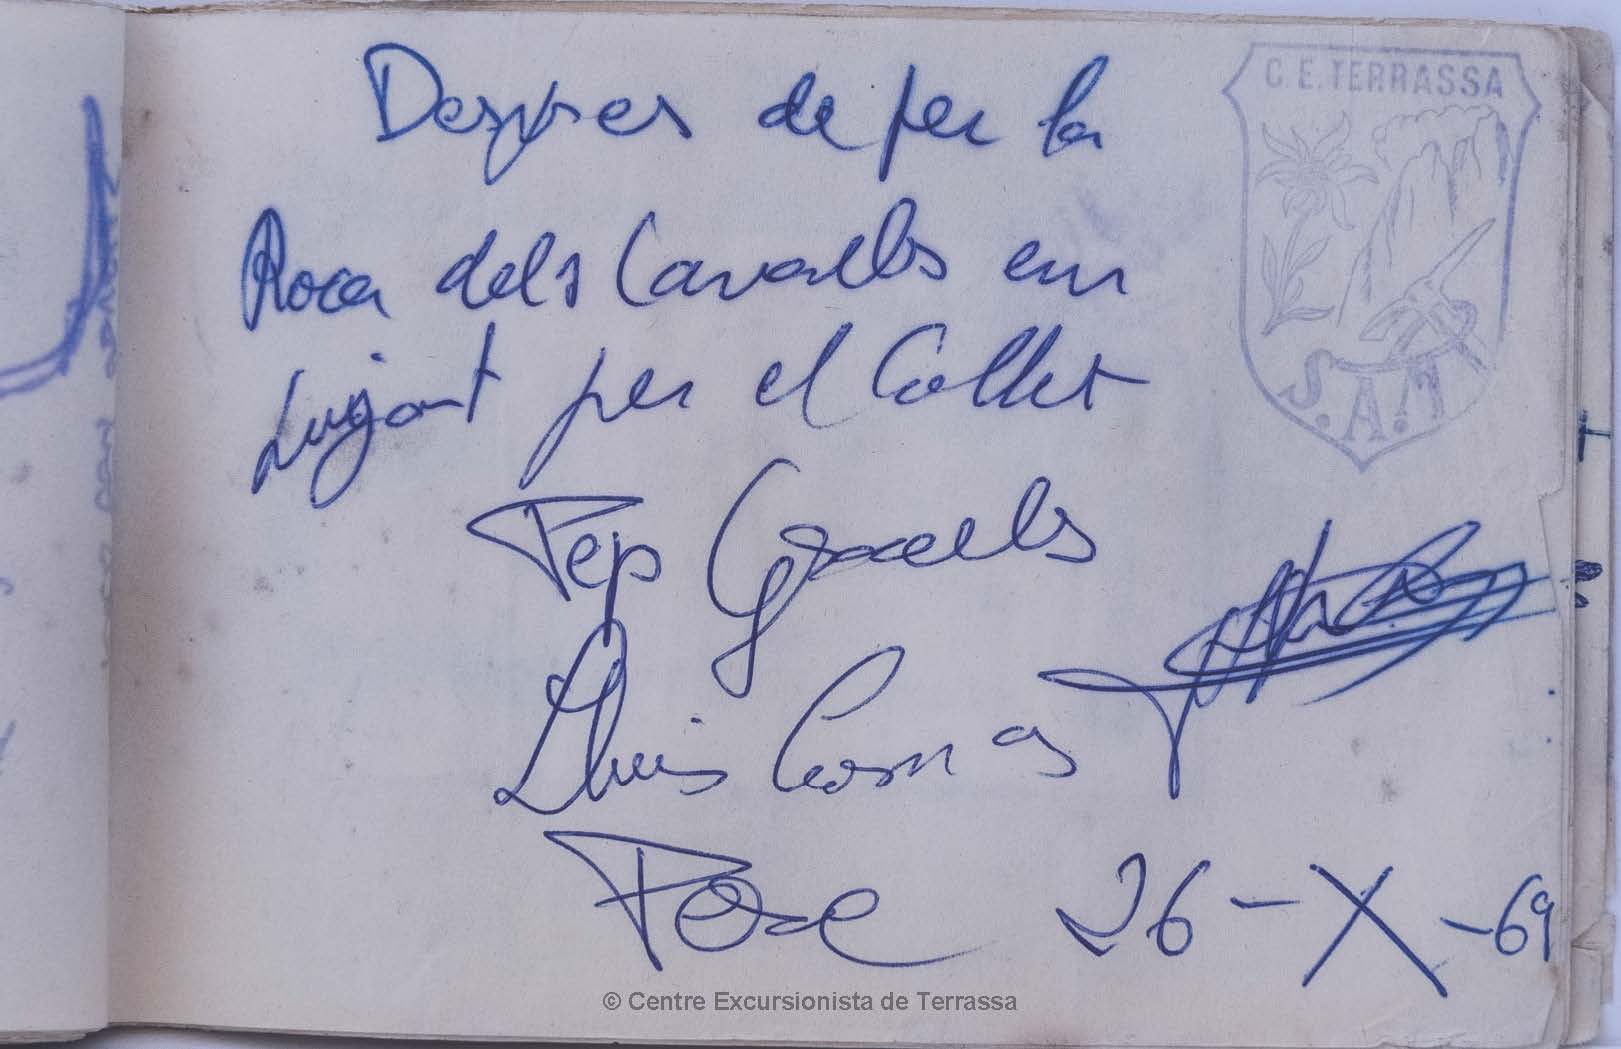 C.E. TERRASSA
Despres de fer la
Roca dels Cavalls em
pujat per el Collet
Pep Graells
Lluis Comas
26-X-69
S.A.T
© Centre Excursionista de Terrassa